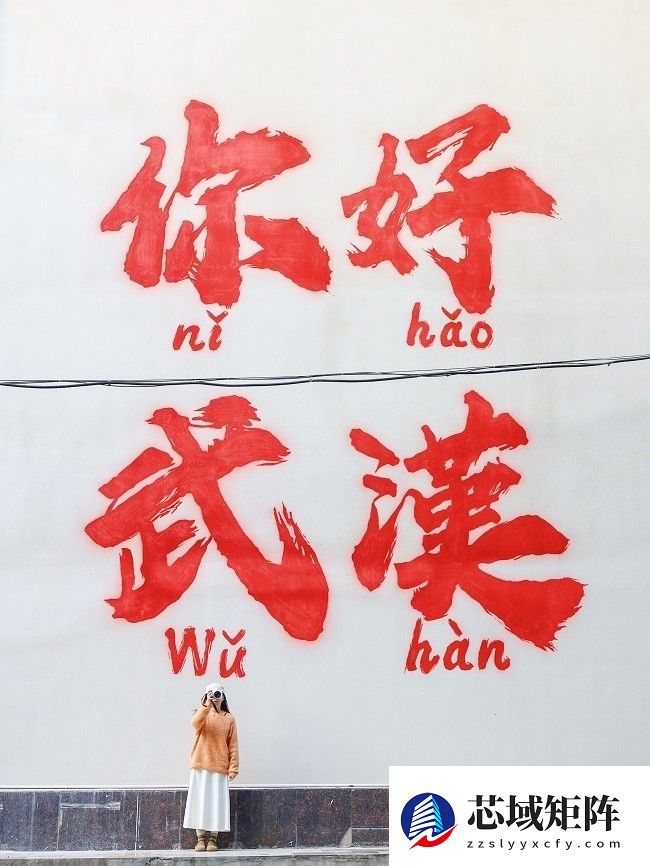 你好
nǐ hǎo
武漢
Wǔ hàn
芯域矩阵
zzslyyxcfy.com